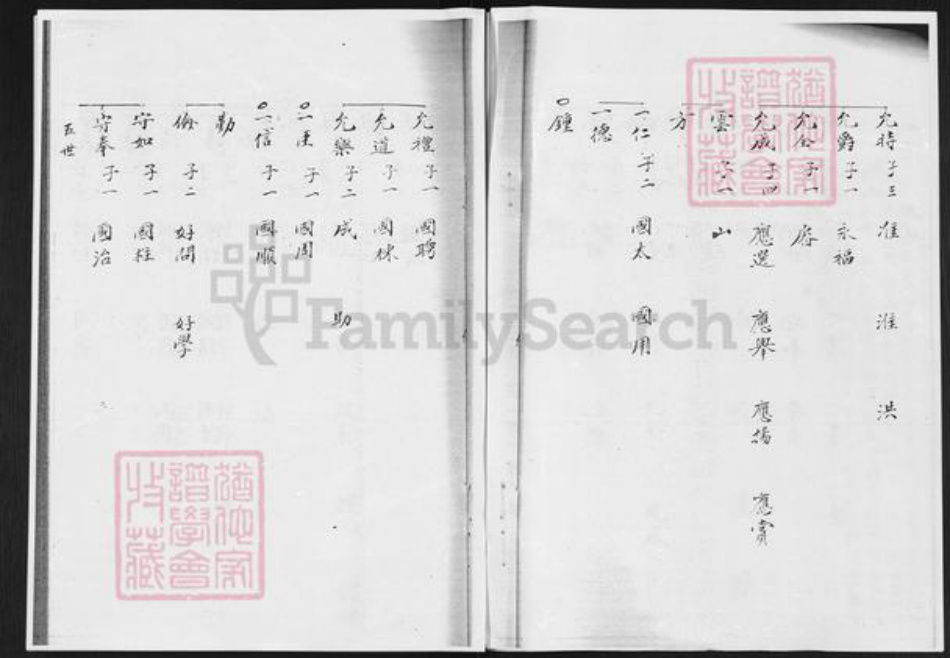 允時 子三 淮 淮 洪
允爵 子一 永福
允公 子一
允成 子四 應選 應舉 應揚 應賞
雲 子一 山
方
一仁 子二 國太 國用
一德
鍾
允禮 子一 國聘
允道 子一 國棟
允樂 子二 成 助
子一 國周
一信 子一 國順
勤
儉 子二 好問 好學
守如 子一 國柱
守奉 子一 國治
五世
FamilySearch
猶他家
譜學會
收藏
猶他家
譜學會
收藏